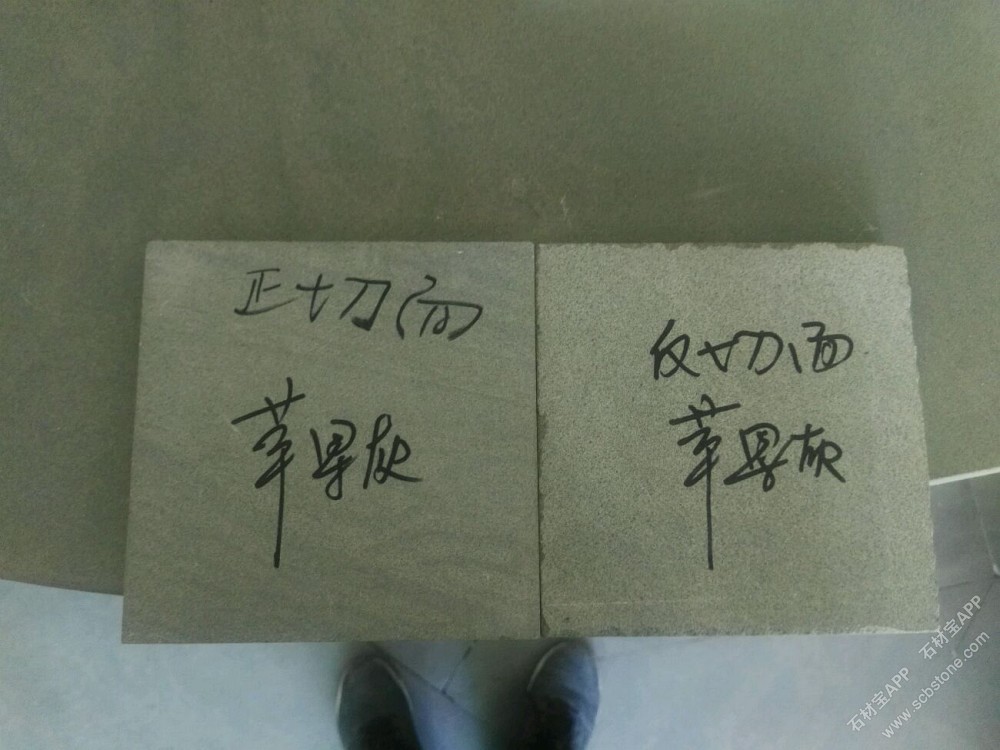 正切面
苹果灰
反切面
苹果灰
石材宝APP 石材宝APP
www.scbstone.com